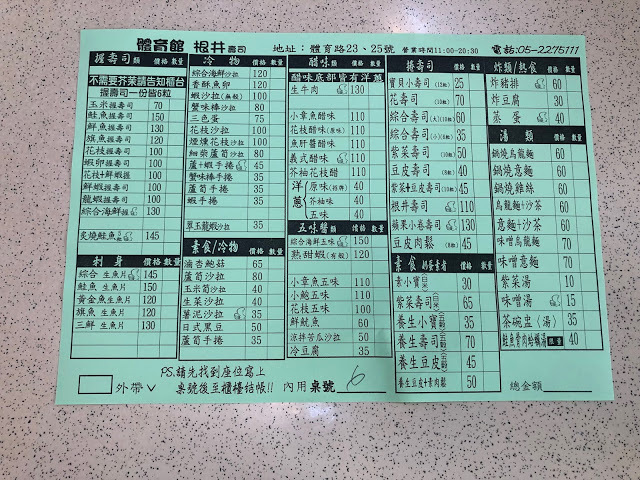 體育館 根井壽司 地址：體育路23、25號 營業時間11:00-20:30 電話:05-2275111
握壽司類 價格 數量
不需要芥茉請告知櫃台
握壽司一份皆6粒
玉米握壽司 70
鮭魚握壽司 150
鮮魚握壽司 130
旗魚握壽司 120
花枝握壽司 100
蝦卵握壽司 110
花枝+鮮蝦握 110
鮮蝦握壽司 110
龍蝦握壽司 110
綜合海鮮握 130
炙燒鮭魚 145
刺身 價格 數量
綜合 生魚片 145
鮭魚 生魚片 150
黃金魚 生魚片 120
旗魚 生魚片 120
三鮮 生魚片 130
冷物 價格 數量
綜合海鮮沙拉 120
香酥魚卵 120
蝦沙拉(無殼) 100
蟹味棒沙拉 80
三色蛋 75
花枝沙拉 100
煙燻花枝沙拉 100
細柴蘆筍沙拉 80
蘆+蝦手捲 45
蟹味手捲 35
蘆筍手捲 35
蝦手捲 35
草玉龍蝦沙拉 35
素食/冷物 價格 數量
滷杏鮑菇 65
蘆筍沙拉 80
玉米筍沙拉 40
生菜沙拉 40
薯泥沙拉 35
日式黑豆 50
蘆筍手捲 35
醋味類 價格 數量
醋味底部皆有洋蔥
生牛肉 130
小章魚醋味 110
花枝醋味(原味) 110
魚肝醬醋味 110
義式醋味 110
芥柚花枝醋 110
洋蔥 原味(招牌) 40
芥柚味 40
五味 40
五味醬類 價格 數量
綜合海鮮五味 150
熟甜蝦(有殼) 120
小章魚五味 110
小鮑五味 110
花枝五味 100
鮮魷魚 60
涼拌苦瓜沙拉 50
冷豆腐 35
捲壽司 價格 數量
寶貝小壽司(12粒) 25
花壽司(10粒) 70
綜合壽司(大)(10粒) 60
綜合壽司(小)(6粒) 35
紫菜壽司(10粒) 50
豆皮壽司 45
紫菜+豆皮壽司 45
根井壽司 110
蘋果小卷壽司 130
豆皮肉鬆 45
素食 奶蛋素者 價格 數量
素小寶 30
紫菜壽司 65
養生小寶 35
養生壽司 70
養生豆皮 45
養生豆皮+素肉鬆 50
炸類/熱食 價格 數量
炸豬排 60
炸豆腐 30
蒸蛋 40
湯類 價格 數量
鍋燒烏龍麵 60
鍋燒意麵 60
鍋燒雞絲 60
烏龍麵+沙茶 60
意麵+沙茶 60
味噌烏龍麵 60
味噌意麵 70
紫菜湯 10
味噌湯 15
茶碗盅(湯) 35
鮭魚骨肉蛤蠣湯 限量 40
PS.請先找到座位寫上
桌號後至櫃檯結帳!!
外帶ˇ 內用 桌號 6 總金額